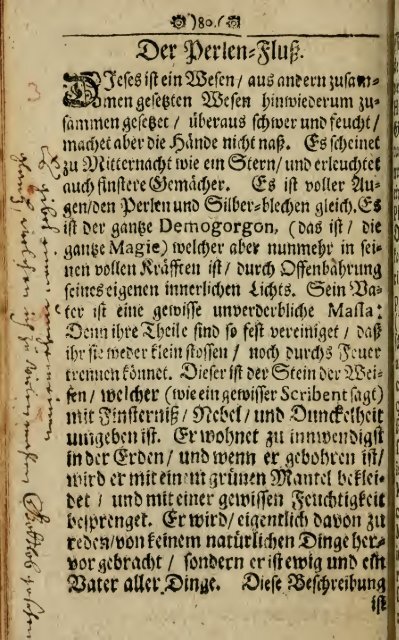 )80.(
Der Perlen-Fluß.
DJeses ist ein Wesen / aus andern zusam-
men gesetzten Wesen hinwiederum zu-
sammen gesetzet / überaus schwer und feucht /
machet aber die Hände nicht naß. Es scheinet
zu Mitternacht wie ein Stern / und erleuchtet
auch finstere Gemächer. Es ist voller Au-
gen / den Perlen und Silber-blechen gleich. Es
ist der gantze Demogorgon, (das ist / die
gantze Magie) welcher aber nunmehr in sei-
nen vollen Kräfften ist / durch Offenbährung
seines eigenen innerlichen Lichts. Sein Va-
ter ist eine gewisse unverderbliche Massa:
Denn ihre Theile sind so fest vereiniget / daß
ihr sie weder klein stossen / noch durchs Feuer
trennen könnet. Dieser ist der Stein der Wei-
sen / welcher (wie ein gewisser Scribent sagt)
mit Finsterniß / Nebel / und Dunckelheit
umgeben ist. Er wohnet zu innwendigst
in der Erden / und wenn er gebohren ist /
wird er mit einem grünen Mantel beklei-
det / und mit einer gewissen Feuchtigkeit
besprenget. Er wird / eigentlich davon zu
reden / von keinem natürlichen Dinge her-
vor gebracht / sondern er ist ewig und ein
Vater aller Dinge. Diese Beschreibung
ist